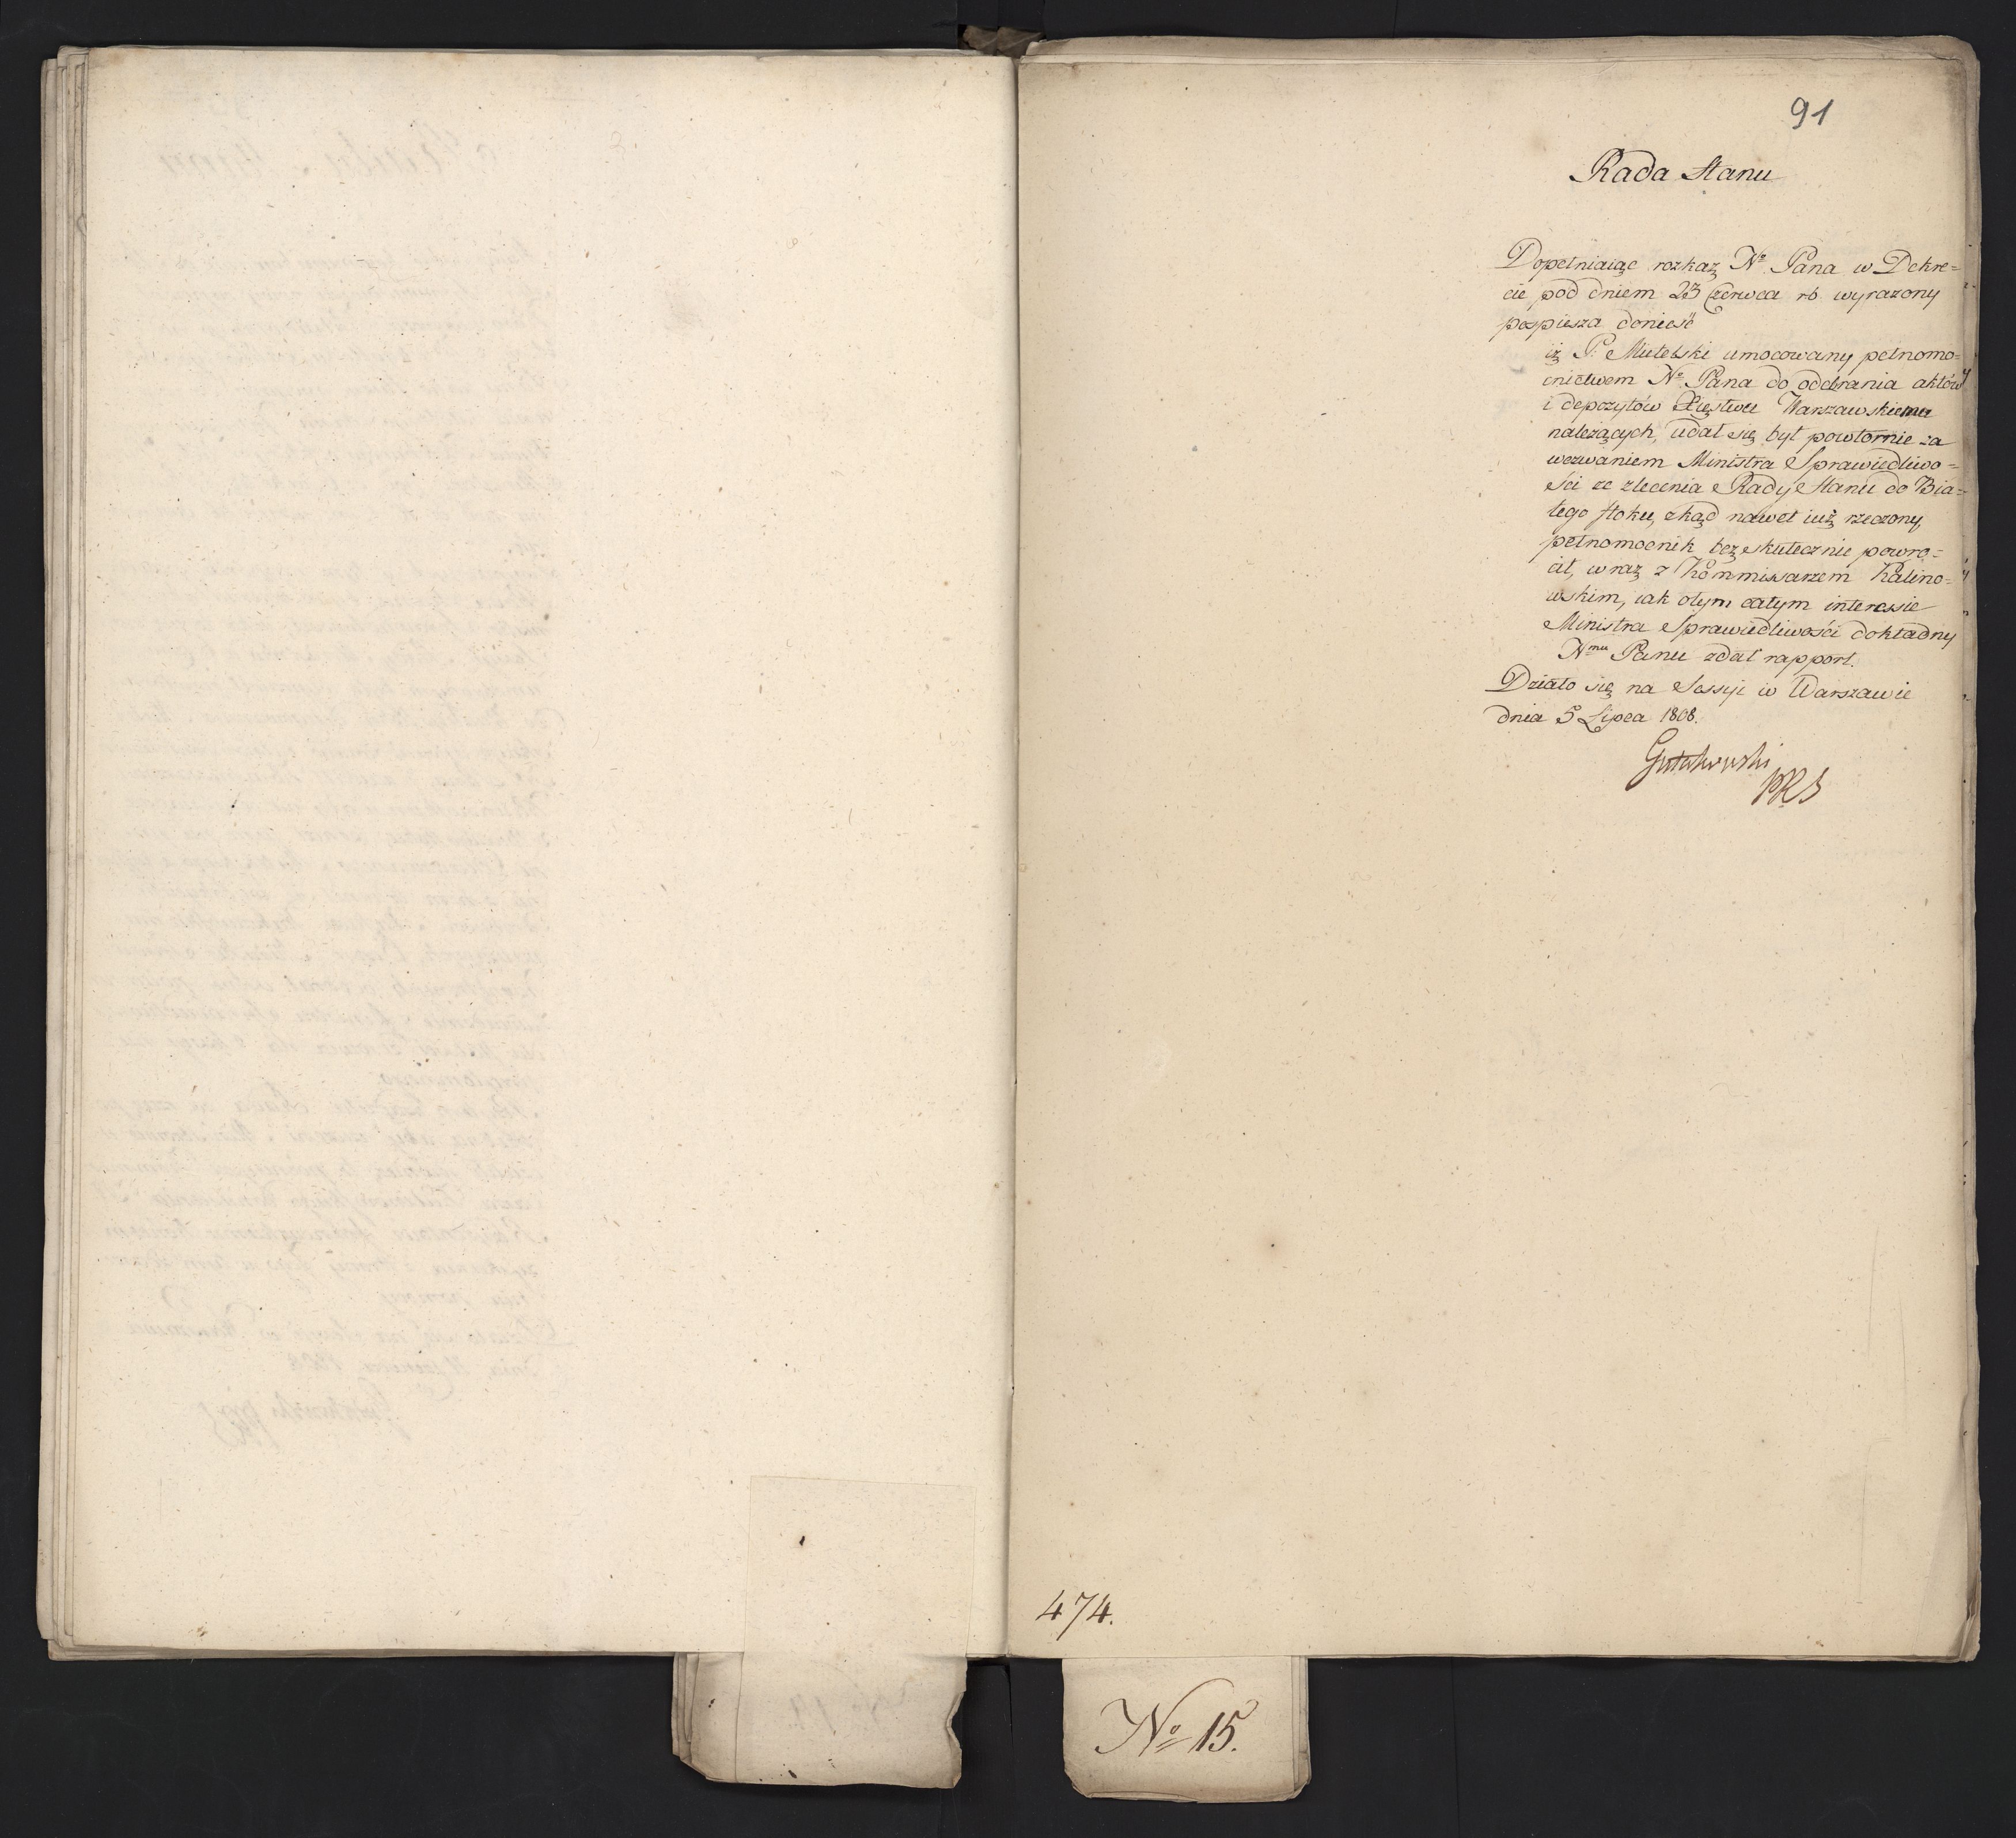 91
Rada Stanu
Dopełniaiąc rozkaz Nº Pana w Dekre=
cie pod dniem 23 Czerwca rb wyrażony
pospiesza donieść
iż P. Mutelski umocowany pełnomo=
cnictwem Nº Pana do odebrania aktów
i depozytów Xięstwu Warszawskiemu
należących, udał się był powtórnie za
wezwaniem Ministra Sprawiedliwo=
ści ze zlecenia Rady Stanu do Bia=
łego stoku, zkąd nawet iuż rzeczony
pełnomocnik bezskutecznie powró=
cił, wraz z Kommissarzem Kalino=
wskim, iak o tym całym interessie
Minister Sprawiedliwości dokładny
Nmu Panu zdał rapport.
Działo się na Sessyi w Warszawie
dnia 5 Lipca 1808.
Gutakowski
PRS
474.
Nº 15.